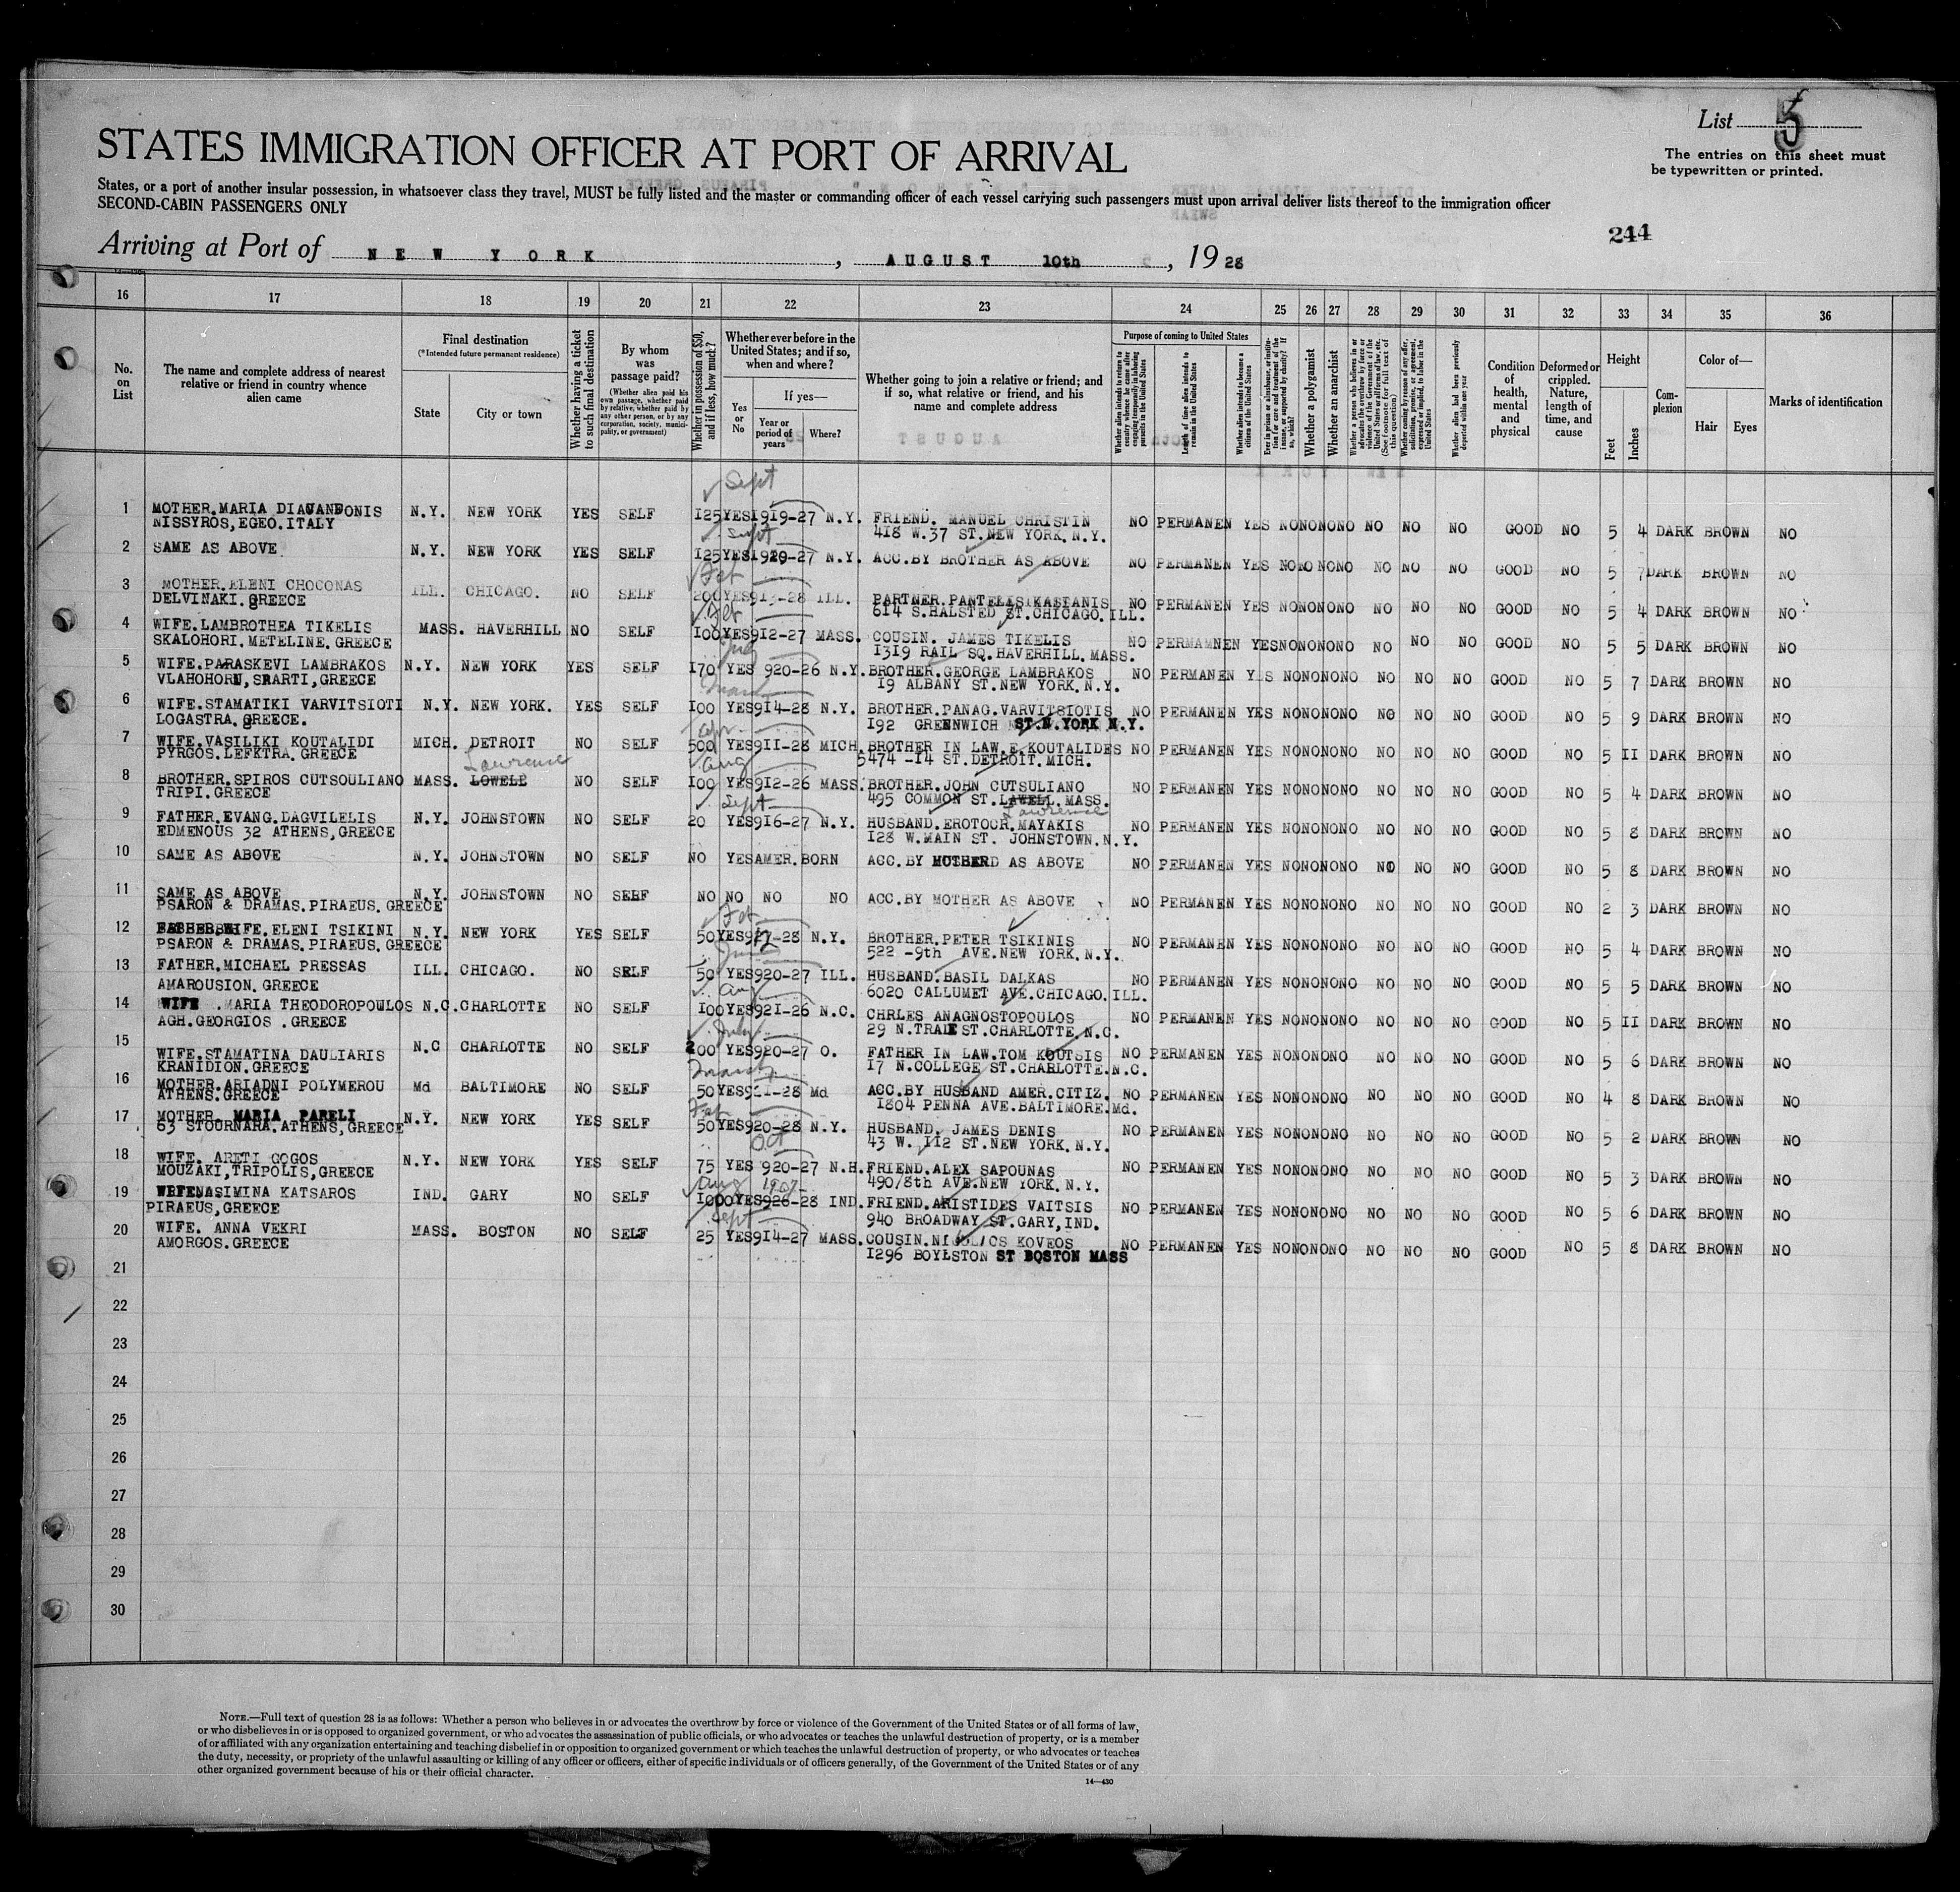 List 5
STATES IMMIGRATION OFFICER AT PORT OF ARRIVAL
The entries on this sheet must
be typewritten or printed.
States, or a port of another insular possession, in whatsoever class they travel, MUST be fully listed and the master or commanding officer of each vessel carrying such passengers must upon arrival deliver lists thereof to the immigration officer
SECOND-CABIN PASSENGERS ONLY
244
Arriving at Port of NEW YORK, AUGUST 10th, 1928
16 17 18 19 20 21 22 23 24 25 26 27 28 29 30 31 32 33 34 35 36
No. on List
The name and complete address of nearest relative or friend in country whence alien came
Final destination
(*Intended future permanent residence)
State
City or town
Whether having a ticket to such final destination
By whom was passage paid?
(Whether alien paid his own passage, whether paid by relative, whether paid by any other person, or by any corporation, society, municipality, or government)
Whether in possession of $50, and if less, how much?
Whether ever before in the United States; and if so, when and where?
Yes or No
If yes—
Year or period of years
Where?
Whether going to join a relative or friend; and if so, what relative or friend, and his name and complete address
Purpose of coming to United States
Whether alien intends to return to country whence he came after engaging temporarily in laboring pursuits in the United States
Length of time alien intends to remain in the United States
Whether alien intends to become a citizen of the United States
Ever in prison or almshouse, or institution for care and treatment of the insane, or supported by charity? If so, which?
Whether a polygamist
Whether an anarchist
Whether a person who believes in or advocates the overthrow by force or violence of the Government of the United States or all forms of law, etc. (See footnote for full text of this question)
Whether coming by reason of any offer, solicitation, promise, or agreement, expressed or implied, to labor in the United States
Whether alien had been previously deported within one year
Condition of health, mental and physical
Deformed or crippled. Nature, length of time, and cause
Height
Feet
Inches
Complexion
Color of—
Hair
Eyes
Marks of identification
Sept
1 MOTHER.MARIA N.Y. NEW YORK YES SELF 125 YES 1919-27 N.Y. FRIEND. MANUEL CHRISTIN NO PERMANEN YES NO NO NO NO NO NO NO GOOD NO 5 4 DARK BROWN NO
NISSYROS,EGEO.ITALY 418 W.37 ST.NEW YORK.N.Y.
Sept
2 SAME AS ABOVE N.Y. NEW YORK YES SELF 125 YES 1920-27 N.Y. ACC.BY BROTHER AS ABOVE NO PERMANEN YES NO NO NO NO NO NO NO GOOD NO 5 7 DARK BROWN NO
3 MOTHER.ELENI CHOCONAS ILL. CHICAGO. NO SELF 200 YES 913-28 ILL. PARTNER.PANTELIS KASTANIS NO PERMANEN YES NO NO NO NO NO NO NO GOOD NO 5 4 DARK BROWN NO
DELVINAKI.GREECE 614 S.HALSTED ST.CHICAGO.ILL.
4 WIFE.LAMBROTHEA TIKELIS MASS. HAVERHILL NO SELF 100 YES 912-27 MASS. COUSIN. JAMES TIKELIS NO PERMAMNEN YES NO NO NO NO NO NO NO GOOD NO 5 5 DARK BROWN NO
SKALOHORI.METELINE.GREECE 1319 RAIL SQ.HAVERHILL.MASS.
5 WIFE.PARASKEVI LAMBRAKOS N.Y. NEW YORK YES SELF 170 YES 920-26 N.Y. BROTHER.GEORGE LAMBRAKOS NO PERMANEN YES NO NO NO NO NO NO NO GOOD NO 5 7 DARK BROWN NO
VLAHOHORI,SPARTI,GREECE 19 ALBANY ST.NEW YORK.N.Y.
6 WIFE.STAMATIKI VARVITSIOTI N.Y. NEW YORK. YES SELF 100 YES 914-28 N.Y. BROTHER.PANAG.VARVITSIOTIS NO PERMANEN YES NO NO NO NO NO NO NO GOOD NO 5 9 DARK BROWN NO
LOGASTRA.GREECE. 192 GREENWICH ST.N.YORK N.Y.
Apr
7 WIFE.VASILIKI KOUTALIDI MICH. DETROIT NO SELF 500 YES 911-28 MICH. BROTHER IN LAW.E.KOUTALIDES NO PERMANEN YES NO NO NO NO NO NO NO GOOD NO 5 11 DARK BROWN NO
PYRGOS.LEFKTRA.GREECE 5474 -14 ST.DETROIT.MICH.
Lawrence Aug
8 BROTHER.SPIROS CUTSOULIANO MASS. LOWELL NO SELF 100 YES 912-26 MASS. BROTHER.JOHN CUTSULIANO NO PERMANEN YES NO NO NO NO NO NO NO GOOD NO 5 4 DARK BROWN NO
TRIPI.GREECE 495 COMMON ST.LAWELL.MASS.
Sept Lawrence
9 FATHER.EVANG.DAGVILELIS N.Y. JOHNSTOWN NO SELF 20 YES 916-27 N.Y. HUSBAND.EROTOCR.MAYAKIS NO PERMANEN YES NO NO NO NO NO NO NO GOOD NO 5 8 DARK BROWN NO
EDMENOUS 32 ATHENS,GREECE 128 W.MAIN ST. JOHNSTOWN.N.Y.
10 SAME AS ABOVE N.Y. JOHNSTOWN NO SELF NO YES AMER.BORN ACC.BY AS ABOVE NO PERMANEN YES NO NO NO NO NO NO NO GOOD NO 5 8 DARK BROWN NO
11 SAME AS ABOVE N.Y. JOHNSTOWN NO SELF NO NO NO NO ACC.BY MOTHER AS ABOVE NO PERMANEN YES NO NO NO NO NO NO NO GOOD NO 2 3 DARK BROWN NO
PSARON & DRAMAS.PIRAEUS.GREECE
12 WIFE.ELENI TSIKINI N.Y. NEW YORK YES SELF 50 YES 927-28 N.Y. BROTHER.PETER TSIKINIS NO PERMANEN YES NO NO NO NO NO NO NO GOOD NO 5 4 DARK BROWN NO
PSARON & DRAMAS.PIRAEUS.GREECE 522 -9th AVE.NEW YORK.N.Y.
June
13 FATHER.MICHAEL PRESSAS ILL. CHICAGO. NO SELF 50 YES 920-27 ILL. HUSBAND.BASIL DALKAS NO PERMANEN YES NO NO NO NO NO NO NO GOOD NO 5 5 DARK BROWN NO
AMAROUSION.GREECE 6020 CALLUMET AVE.CHICAGO.ILL.
Aug
14 WIFE .MARIA THEODOROPOULOS N.C. CHARLOTTE NO SELF 100 YES 921-26 N.C. CHRLES ANAGNOSTOPOULOS NO PERMANEN YES NO NO NO NO NO NO NO GOOD NO 5 11 DARK BROWN NO
AGH.GEORGIOS .GREECE 29 N.TRADE ST.CHARLOTTE.N.C.
July
15 WIFE.STAMATINA DAULIARIS N.C CHARLOTTE NO SELF 200 YES 920-27 O. FATHER IN LAW.TOM KOUTSIS NO PERMANEN YES NO NO NO NO NO NO NO GOOD NO 5 6 DARK BROWN NO
KRANIDION.GREECE 17 N.COLLEGE ST.CHARLOTTE.N.C.
March
16 MOTHER.ARIADNI POLYMEROU Md BALTIMORE NO SELF 50 YES 921-28 Md ACC.BY HUSBAND AMER.CITIZ. NO PERMANEN YES NO NO NO NO NO NO NO GOOD NO 4 8 DARK BROWN NO
ATHENS.GREECE 1804 PENNA AVE.BALTIMORE.Md.
17 MOTHER MARIA PARELI N.Y. NEW YORK YES SELF 50 YES 920-28 N.Y. HUSBAND. JAMES DENIS NO PERMANEN YES NO NO NO NO NO NO NO GOOD NO 5 2 DARK BROWN NO
63 STOURNARA.ATHENS,GREECE 43 W. 112 ST.NEW YORK.N.Y.
Oct
18 WIFE. ARETI GOGOS N.Y. NEW YORK YES SELF 75 YES 920-27 N.H. FRIEND.ALEX SAPOUNAS NO PERMANEN YES NO NO NO NO NO NO NO GOOD NO 5 3 DARK BROWN NO
MOUZAKI,TRIPOLIS,GREECE 490/8th AVE.NEW YORK.N.Y.
Aug 1907
19 ASIMINA KATSAROS IND. GARY NO SELF 1000 YES 926-28 IND. FRIEND.ARISTIDES VAITSIS NO PERMANEN YES NO NO NO NO NO NO NO GOOD NO 5 6 DARK BROWN NO
PIRAEUS,GREECE 940 BROADWAY ST.GARY,IND.
Sept
20 WIFE. ANNA VEKRI MASS. BOSTON NO SELF 25 YES 914-27 MASS. COUSIN. KOVEOS NO PERMANEN YES NO NO NO NO NO NO NO GOOD NO 5 8 DARK BROWN NO
AMORGOS.GREECE 1296 BOYLSTON ST BOSTON MASS
21
22
23
24
25
26
27
28
29
30
NOTE.—Full text of question 28 is as follows: Whether a person who believes in or advocates the overthrow by force or violence of the Government of the United States or of all forms of law,
or who disbelieves in or is opposed to organized government, or who advocates the assassination of public officials, or who advocates or teaches the unlawful destruction of property, or is a member
of or affiliated with any organization entertaining and teaching disbelief in or opposition to organized government or which teaches the unlawful destruction of property, or who advocates or teaches
the duty, necessity, or propriety of the unlawful assaulting or killing of any officer or officers, either of specific individuals or of officers generally, of the Government of the United States or of any
other organized government because of his or their official character.
14—430